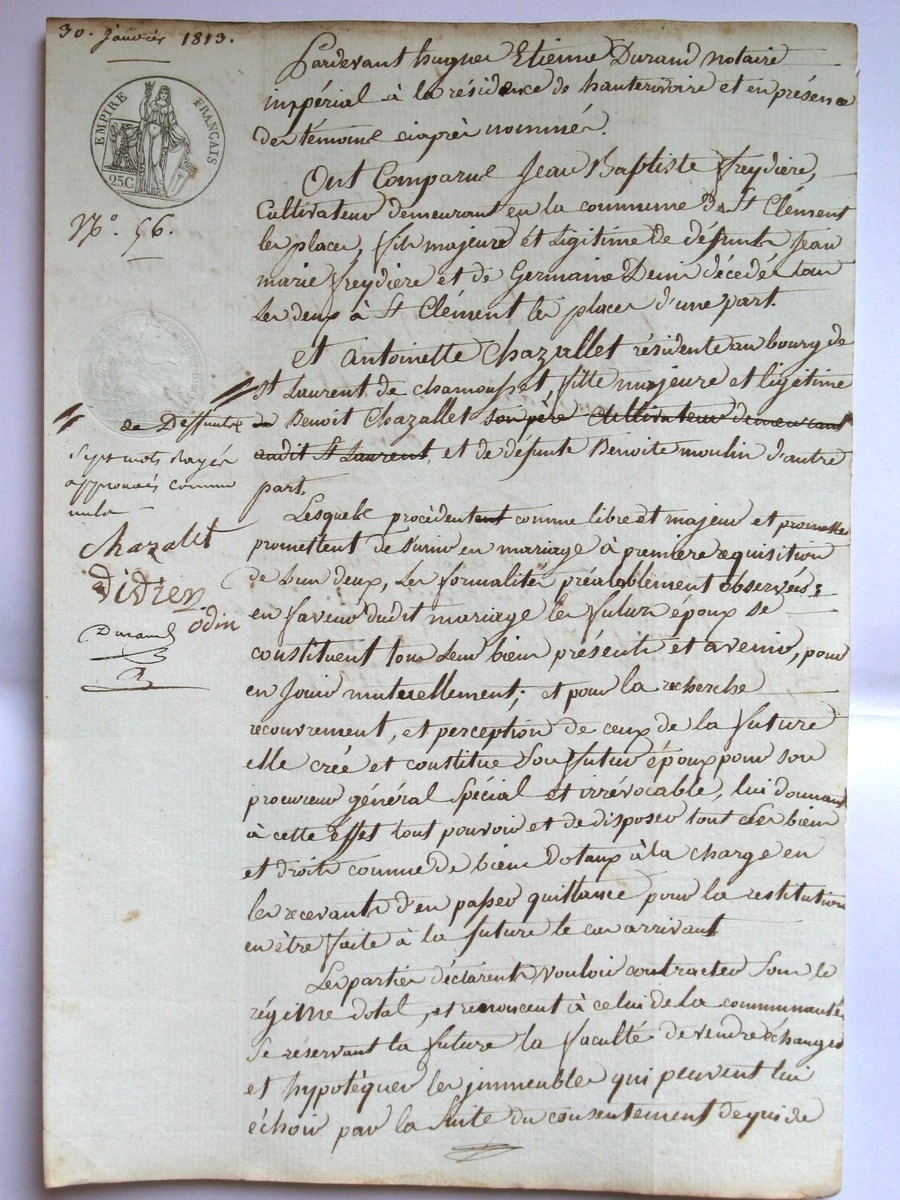 30. Janvier 1813.
EMPIRE FRANÇAIS
25C
N°. 56.
Pardevant hugues Etienne Durand notaire
impérial à la résidence de hauterivoire et en présence
des témoins ciaprès nommés.
Ont Comparus Jean Baptiste Freydière,
Cultivateur demeurant en la commune De St Clément
les places, fils majeure et légitime de défunts Jean
marie freydière et de Germaine Denis décédés tous
Les deux à St Clément les places d'une part.
Et Antoinette Chazallet résidente au bourg de
St Laurent de chamousset, fille majeure et légitime
de Benoit Chazallet son père Cultivateur demeurant
audit St Laurent, et de défunte Benoite moulin d'autre
part.
de Deffunts
Sept mots rayés
approuvés comme
nuls
Chazallet
Didier
odin
Durand
Lesquels procèdentant comme libre et majeur et promettes
promettent de s'unir en mariage à première réquisition
de L'un deux, Les formalités préalablement observées;
en faveur dudit mariage les futurs époux se
constituent tous Leur bien présents et avenir, pour
en Jouir mutuellement; et pour la recherche
recouvrement, et perception de ceux de la future
elle crée et constitue Son futur époux pour son
procureur général Spécial et irrévocable, lui donnant
à cette effet tout pouvoir et de disposer tout des bien
et droits comme de bien Dotaux à la charge en
les recevants d'en passer quittance pour la restitution
en être faite à la future le cas arrivant
Les parties déclarents vouloir contracter Sous le
régime dotal, et renoncent à celui de la communauté
Se réservant la future la faculté de vendre échanger
et hypotéquer les immeubles qui peuvent lui
échoir par la Suite du consentement de qui de